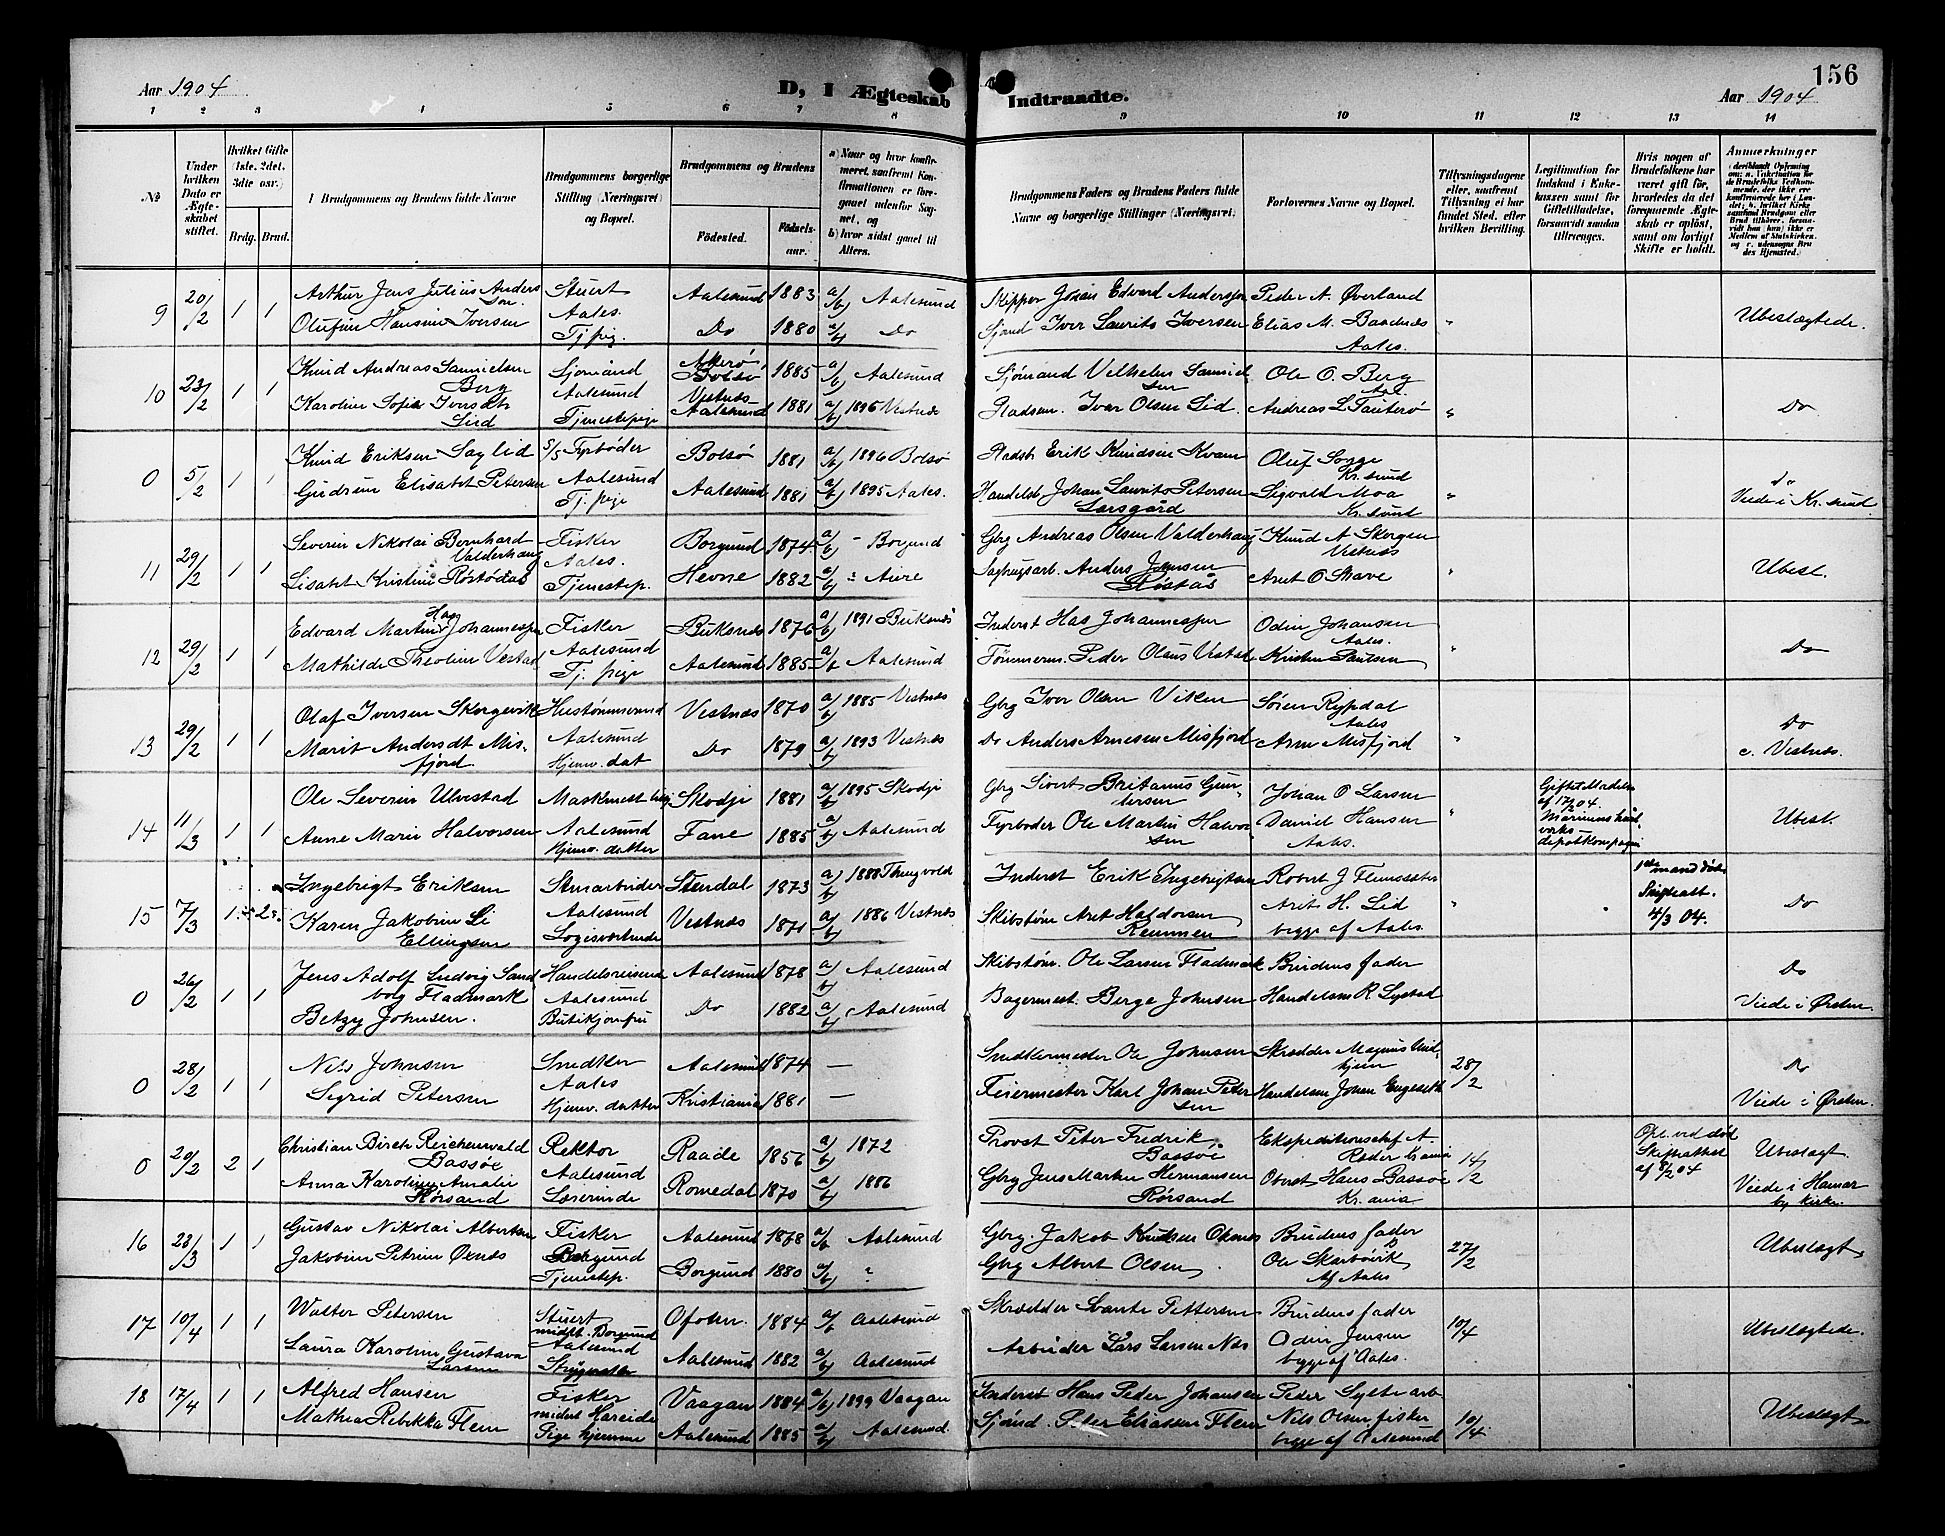 156
Aar 1904
D, I Ægteskab Indtraadte.
Aar 1904
1 2 3 4 5 6 7 8 9 10 11 12 13 14
№
Under hvilken Dato er Ægteskabet stiftet.
Hvilket Gifte (1ste, 2det, 3die osv.)
Brdg. Brud.
I Brudgommens og Brudens fulde Navne
Brudgommens borgerlige Stilling (Næringsvei) og Bopæl.
Brudgommens og Brudens
Fødested.
Fødselsaar.
a) Naar og hvor konfirmeret, saafremt Konfirmationen er foregaaet udenfor Sognet, og
b) hvor sidst gaaet til Alters.
Brudgommens Faders og Brudens Faders fulde Navne og borgerlige Stillinger (Næringsvei).
Forlovernes Navne og Bopæl.
Tillysningsdagene eller, saafremt Tillysning ei har fundet Sted, efter hvilken Bevilling.
Legitimation for Indskud i Enkekassen samt for Giftetilladelse, forsaavidt saadan tiltrænges.
Hvis nogen af Brudefolkene har været gift før, hvorledes da det foregaaende Ægteskab er opløst, samt om lovligt Skifte er holdt.
Anmærkninger
9 20/2 1 1 Arthur Jens Julius Andersson Stuert Aalesund 1883 a/b) Aalesund Skipper Johan Edvard Anderssen Peder A. Øverland
Olufine Hansine Iversen Aales. Tj.pig. Do 1880 a/b) Do Sjømd Iver Laurits Iversen Elias M. Baadnæs Aales. " Ubeslægtede.
10 23/2 1 1 Knud Andreas Samuelsen Berg Sjømand Akerø Bolsø 1885 a/b) Aalesund Sjømand Vilhelm Samuelsen Ole O. Berg Aal.
Karoline Sofie Iversdt Lid Aalesund Tjenestepige Vestnæs Aalesund 1881 a/b) 1896 Vestnæs Pladsm. Iver Olsen Lid. Andreas L. Tauterø " Do
0 5/2 1 1 Knud Eriksen Saglid S/S Fyrbøder Bolsø 1881 a/b) 1896 Bolsø Pladsb. Erik Knudsen Kvam Oluf Sogge Kr.sund
Gudrun Elisabet Petersen Aalesund Tj. pige Aalesund 1881 a/b) 1895 Aales. Handelsb. Johan Laurits Petersen Larsgård Sigvald Moa Kr.sund " do Viede i Kr.sund
11 29/2 1 1 Severin Nikolai Bernhard Valderhaug Fisker Borgund 1874 a/b) - Borgund Gbrg Andreas Olsen Valderhaug Knud A Skorgen Vestnæs
Lisabet Kristine Røstødås Aales. Tjenestep. Hevne 1882 a/b) - Aure Saghugsarb. Anders Jensen Røståås Aret O Stave " Ubesl.
12 29/2 1 1 Edvard Martin Hag Johannessen Fisker Buksnæs 1876 a/b) 1891 Buksnæs Inderst Has Johannessen Odin Johansen Aales.
Mathilde Theoline Vestad Aalesund Tj. pige Aalesund 1885 a/b) Aalesund Tømmerm. Peder Olaus Vestad Kristen Paulsen " Do
13 29/2 1 1 Olaf Iversen Skorgevik Hustømmermd Vestnæs 1870 a/b) 1885 Vestnæs Gbrg Iver Olsen Viken Søren Rypdal Aales
Marit Andersdt Misfjord. Aalesund Hjemv. dat Do 1879 a/b) 1893 Vestnæs Do Anders Arnesen Misfjord Arne Misfjord " Do c. Vestnæs.
14 11/3 1 1 Ole Severin Ulvestad Maskinist Skodje 1881 a/b) 1895 Skodje Gbrg Sivert Britanus Gundersen Johan O Larsen Giftet. Meddelt af 17/2 04.
Anne Marie Halvorsen Aalesund Hjemv. datter Fane 1885 a/b) Aalesund Fyrbøder Ole Martin Halvorsen Daniel Hansen Aales. " Marinens depotkompagni Ubesl.
15 7/3 1 2 Ingebrigt Eriksen Stenarbeider Stendal 1873 a/b) 1888 Thingvold Inderst Erik Ingebrigtsen Robert J Flemsæter 1ste mand død. Skifteatt. 4/3 04.
Karen Jakobine Li Ellingsen Aalesund Logisværtinde Vestnæs 1871 a/b) 1886 Vestnæs Skibstøm Aret Haldorsen Remmen Arit H. Lid begge af Aales. " Do
0 26/2 1 1 Jens Adolf Ludvig Sandborg Fladmark Handelsreisende Aalesund 1878 a/b) Aalesund Skibstøm. Ole Larsen Fladmark Brudens fader Do
Betzy Johnsen. Aalesund Butikjomfru Do 1882 a/b) Aalesund Bagermest. Berge Johnsen Handelsm R Lystad Viede i Ørsten.
0 28/2 1 1 Nils Johnsen Snedker Aalesund 1874 — Snedkermester Ole Johnsen Skrædder Magnus 28/2 Do
Sigrid Petersen Aales Hjemv. datter Kristiania 1881 — Feiermester Karl Johan Petersen Handelsm Johan Engeseth Viede i Ørsten.
0 20/2 2 1 Christian Birch Reichenwald Bassøe Rektor Raade 1856 a/b) 1872 Provst Peter Fredrik Bassøe Ekspeditionschef A. Røder 14/2 Opl. ved død Skifteattest af 8/2 04 Ubeslægt.
Anna Karoline Amalie Rørsand Aalesund Lærerinde Romedal 1870 a/b) 1886 Gbrg Jens Martin Hermansen Rørsand Oberst Hans Bassøe Kr.ania Viede i Hamar by kirke.
16 23/3 1 1 Gustav Nikolai Albertsen Fisker Aalesund 1878 a/b Aalesund Gbrg. Jakob Knudsen Oksnes Brudens fader
Jakobine Petrine Øxnæs Borgund Tjenestep. Borgund 1880 a/b) " Gbrg Albert Olsen Ole Skarbøvik Af Aales 27/2 Ubeslægt.
17 10/4 1 1 Walter Petersen Stuert midlt. Borgund Ofoten. 1884 a/b Aalesund Skrædder Svante Pettersen Brudens fader
Laura Karoline Gustava Larsen Aalesund Strygerske Aalesund 1882 a/b) Aalesund Arbeider Lars Larsen Næs Odin Jensen begge af Aales. 10/4 Ubeslægtede.
18 17/4 1 1 Alfred Hansen Fisker midlt Hareide Vaagan 1884 a/b) 1899 Vaagan Inderst Hans Peder Johansen Peder Lyste arb
Mathea Rebekka Flem Pige hjemme Aalesund 1885 a/b) Aalesund. Sjømd. Peter Eliassen Flem Nils Olsen fisker begge af Aalesund 10/4 Ubeslægt.